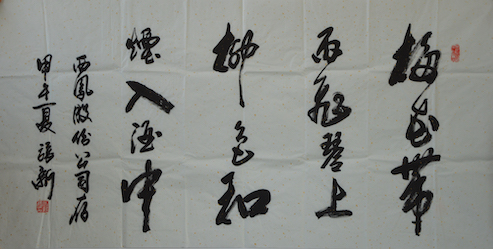 梅花带
雨飞琴上
柳色和
烟入酒中
西凤股份公司存
甲午夏 张新